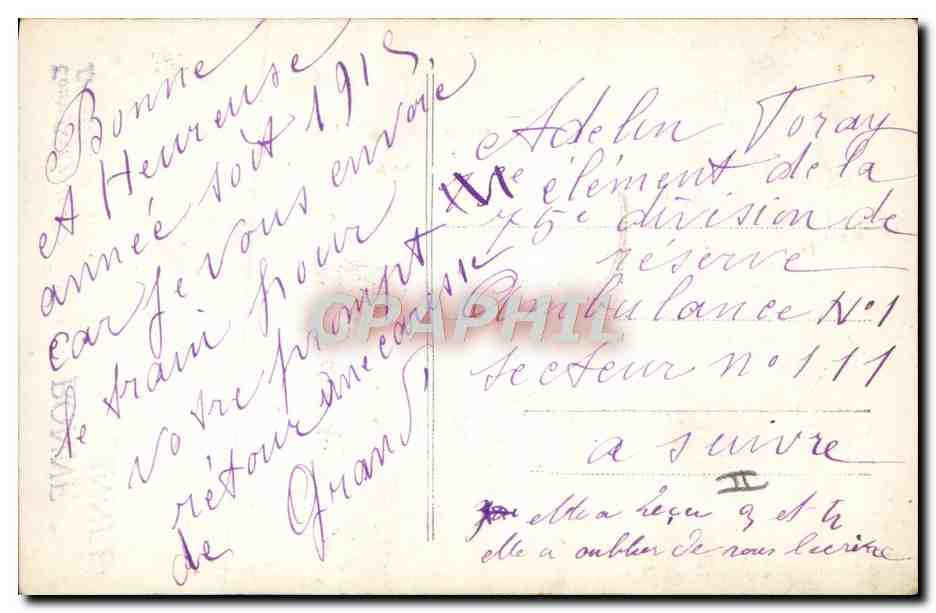 Bonne
et Heureuse
année soit 1915
car je vous envoie
le train pour
votre prompt
rétour une caresse
de Grand
Adelin Toray
XVIe élément de la
75e division de
réserve
Ambulance No 1
secteur no 111
a suivre
II
elle a reçu et
elle a oublier de vous
CPAPHIL